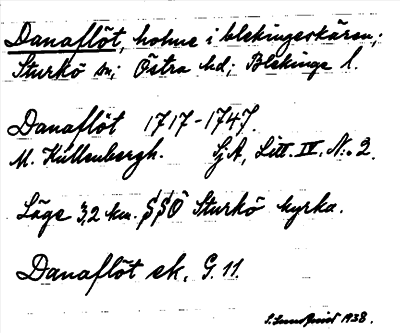 Danaflöt, holme i blekingeskären;
Sturkö sn; Östra hd; Blekinge l.
Danaflöt 1717-1747.
M. Kullenbergh. SjA, Litt. IV. N:o 2.
Läge 3,2 km. SSÖ Sturkö kyrka.
Danaflöt ek. G. 11.
1938.